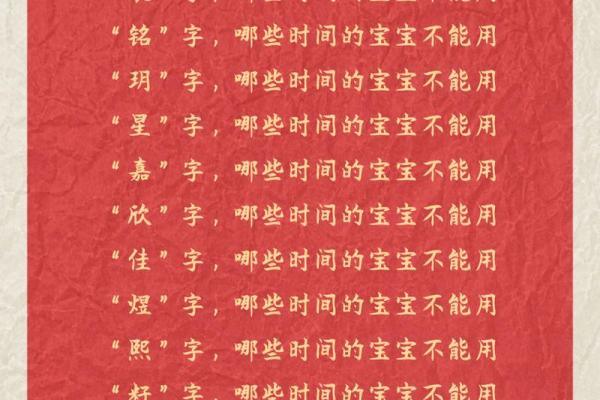 “铭”字，哪些时间的宝宝不能用
“玥”字，哪些时间的宝宝不能用
“星”字，哪些时间的宝宝不能用
“嘉”字，哪些时间的宝宝不能用
“欣”字，哪些时间的宝宝不能用
“佳”字，哪些时间的宝宝不能用
“煜”字，哪些时间的宝宝不能用
“熙”字，哪些时间的宝宝不能用
“籽”字，哪些时间的宝宝不能用